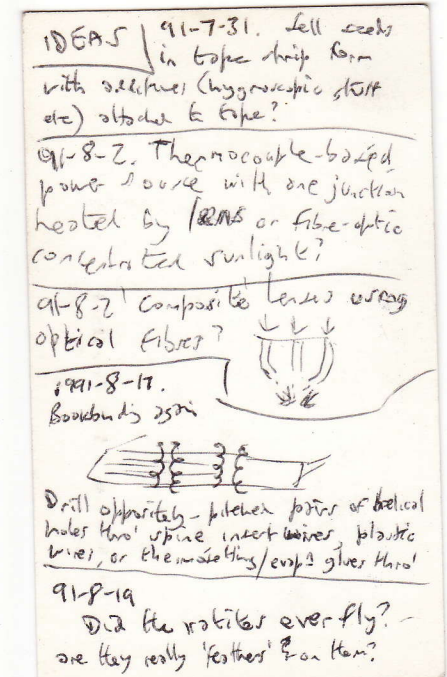 IDEAS
91-7-31. Sell seeds
in tape strip form
with additives (hygroscopic stuff
etc) attached to tape?
91-8-2. Thermocouple-based
power source with one junction
heated by lens or fibre-optic
concentrated sunlight?
91-8-2 'Composite' lenses using
optical fibres?
1991-8-17.
Bookbinding again
Drill oppositely-pitched pairs of helical
holes thro' spine insert wires, plastic
wires, or thermosetting/evap? glues thro'
91-8-19
Did the ratites ever fly?
are they really 'feathers' on them?